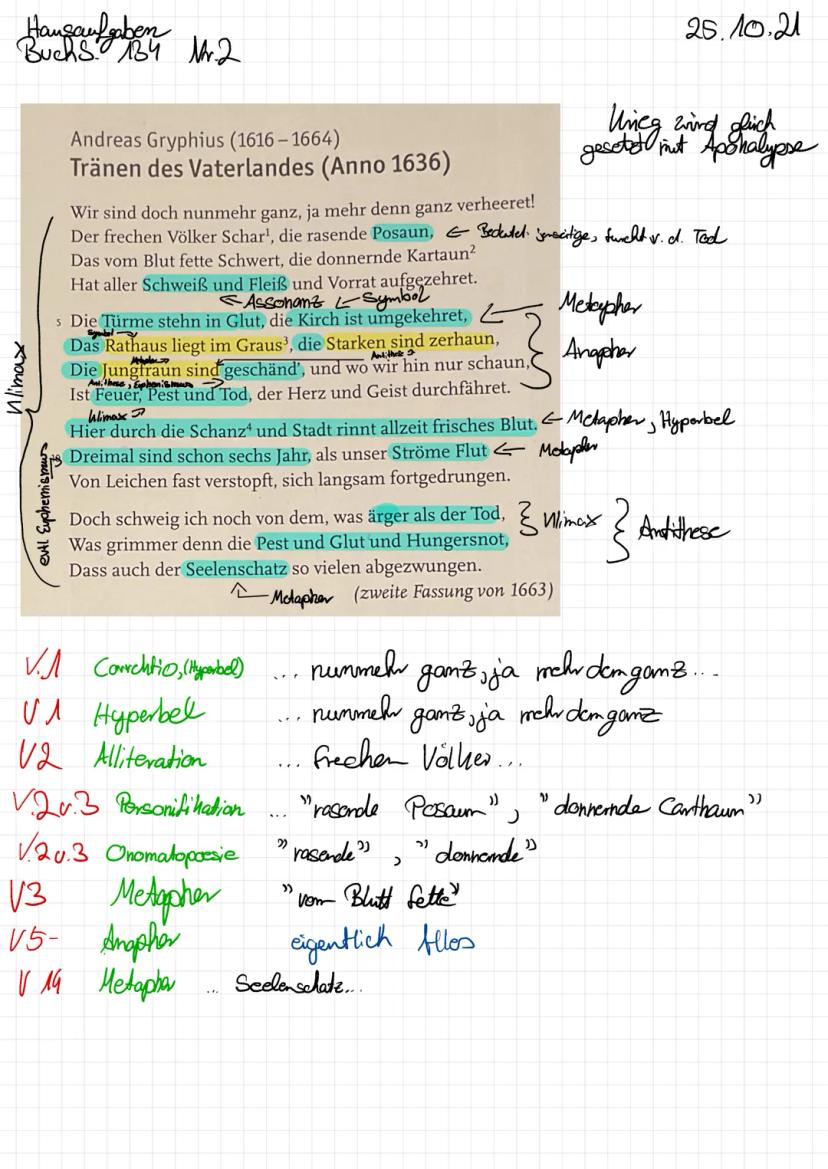 Hausaufgaben
Buch S. 134 Nr.2
25.10.21
Krieg wird gleich
gesetzt mit Apokalypse
Andreas Gryphius (1616 – 1664)
Tränen des Vaterlandes (Anno 1636)
Wir sind doch nunmehr ganz, ja mehr denn ganz verheeret!
Der frechen Völker Schar¹, die rasende Posaun, ← Bedeutet jenseitige, furcht v. d. Tod
Das vom Blut fette Schwert, die donnernde Kartaun²
Hat aller Schweiß und Fleiß und Vorrat aufgezehret.
← Assonanz ← Symbol
5 Die Türme stehn in Glut, die Kirch ist umgekehret, ← Metapher
Symbol →
Das Rathaus liegt im Graus³, die Starken sind zerhaun,
Anapher
Metapher → Antithese →
Die Jungfraun sind geschänd', und wo wir hin nur schaun,
Antithese, Euphemismus →
Ist Feuer, Pest und Tod, der Herz und Geist durchfähret.
Klimax →
Hier durch die Schanz⁴ und Stadt rinnt allzeit frisches Blut. ← Metapher, Hyperbel
10 Dreimal sind schon sechs Jahr, als unser Ströme Flut ← Metapher
Von Leichen fast verstopft, sich langsam fortgedrungen.
Doch schweig ich noch von dem, was ärger als der Tod, } Klimax } Antithese
Was grimmer denn die Pest und Glut und Hungersnot,
Dass auch der Seelenschatz so vielen abgezwungen.
← Metapher (zweite Fassung von 1663)
Klimax
evtl Euphemismus
V.1 Correchtio, (Hyperbel) ... nunmehr ganz, ja mehr denn ganz...
V1 Hyperbel ... nunmehr ganz, ja mehr denn ganz
V2 Alliteration ... frechen Völker...
V.2u.3 Personifikation ... "rasende Posaun", "donnernde Carthaun"
V.2u.3 Onomatopoesie "rasende", "donnernde"
V3 Metapher "vom Blutt fette"
V5- Anapher eigentlich Alles
V 14 Metapher ... Seelenschatz...